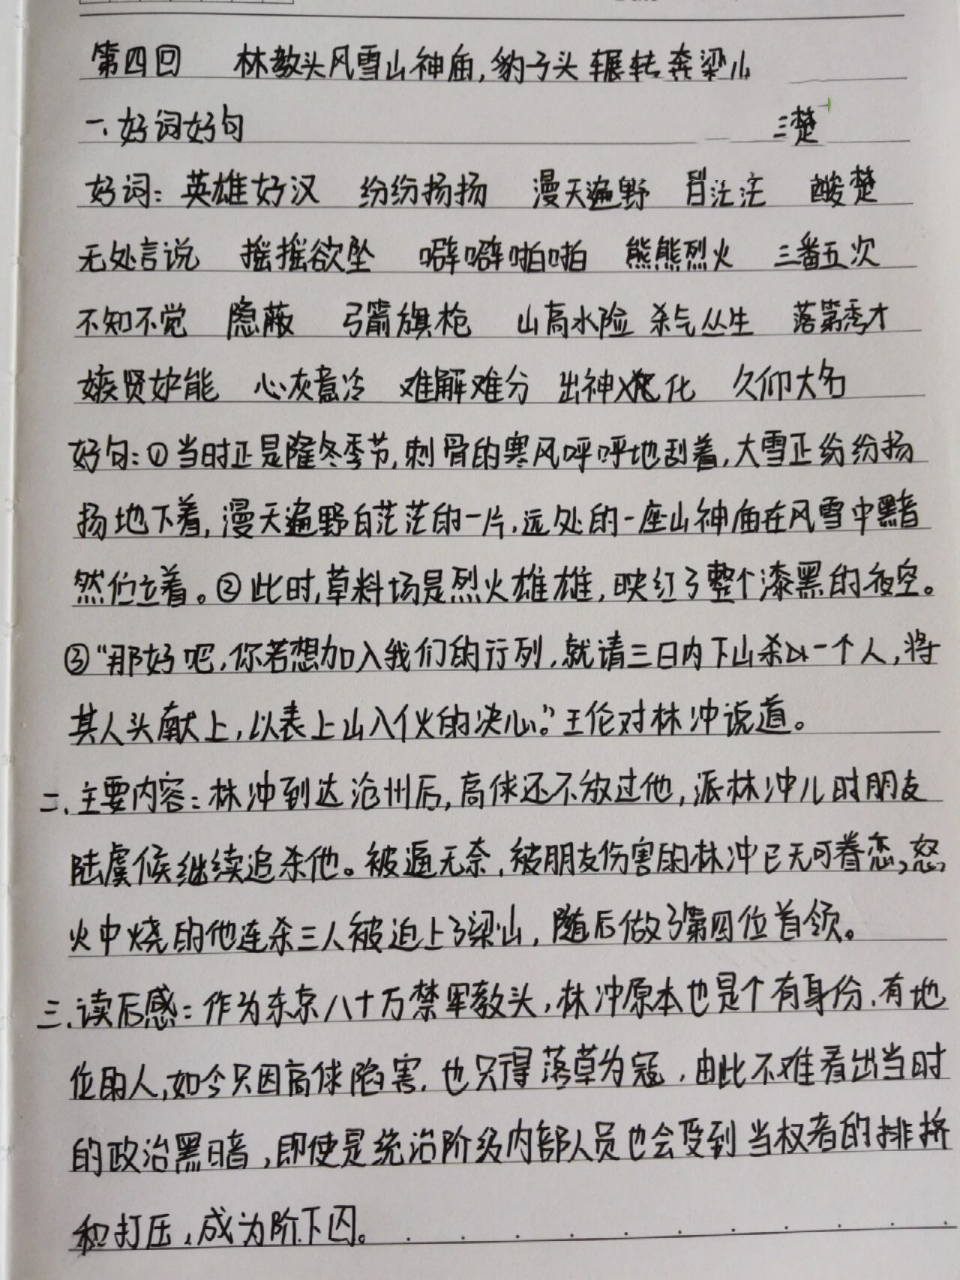 第四回 林教头风雪山神庙,豹子头辗转奔梁山
一、好词好句 三楚
好词:英雄好汉 纷纷扬扬 漫天遍野 白茫茫 酸楚
无处言说 摇摇欲坠 噼噼啪啪 熊熊烈火 三番五次
不知不觉 隐蔽 弓箭旗枪 山高水险 杀气丛生 落第秀才
嫉贤妒能 心灰意冷 难解难分 出神入化 久仰大名
好句:①当时正是隆冬季节,刺骨的寒风呼呼地刮着,大雪正纷纷扬
扬地下着,漫天遍野白茫茫的一片,远处的一座山神庙在风雪中黯
然伫立着。②此时,草料场是烈火雄雄,映红了整个漆黑的夜空。
③“那好吧,你若想加入我们的行列,就请三日内下山杀以一个人,将
其人头献上,以表上山入伙的决心。”王伦对林冲说道。
二、主要内容:林冲到达沧州后,高俅还不放过他,派林冲儿时朋友
陆虞候继续追杀他。被逼无奈,被朋友伤害的林冲已无可眷恋,怒
火中烧的他连杀三人被迫上了梁山,随后做了第四位首领。
三、读后感:作为东京八十万禁军教头,林冲原本也是个有身份、有地
位的人,如今只因高俅陷害,也只得落草为寇,由此不难看出当时
的政治黑暗,即使是统治阶级内部人员也会受到当权者的排挤
和打压,成为阶下囚。